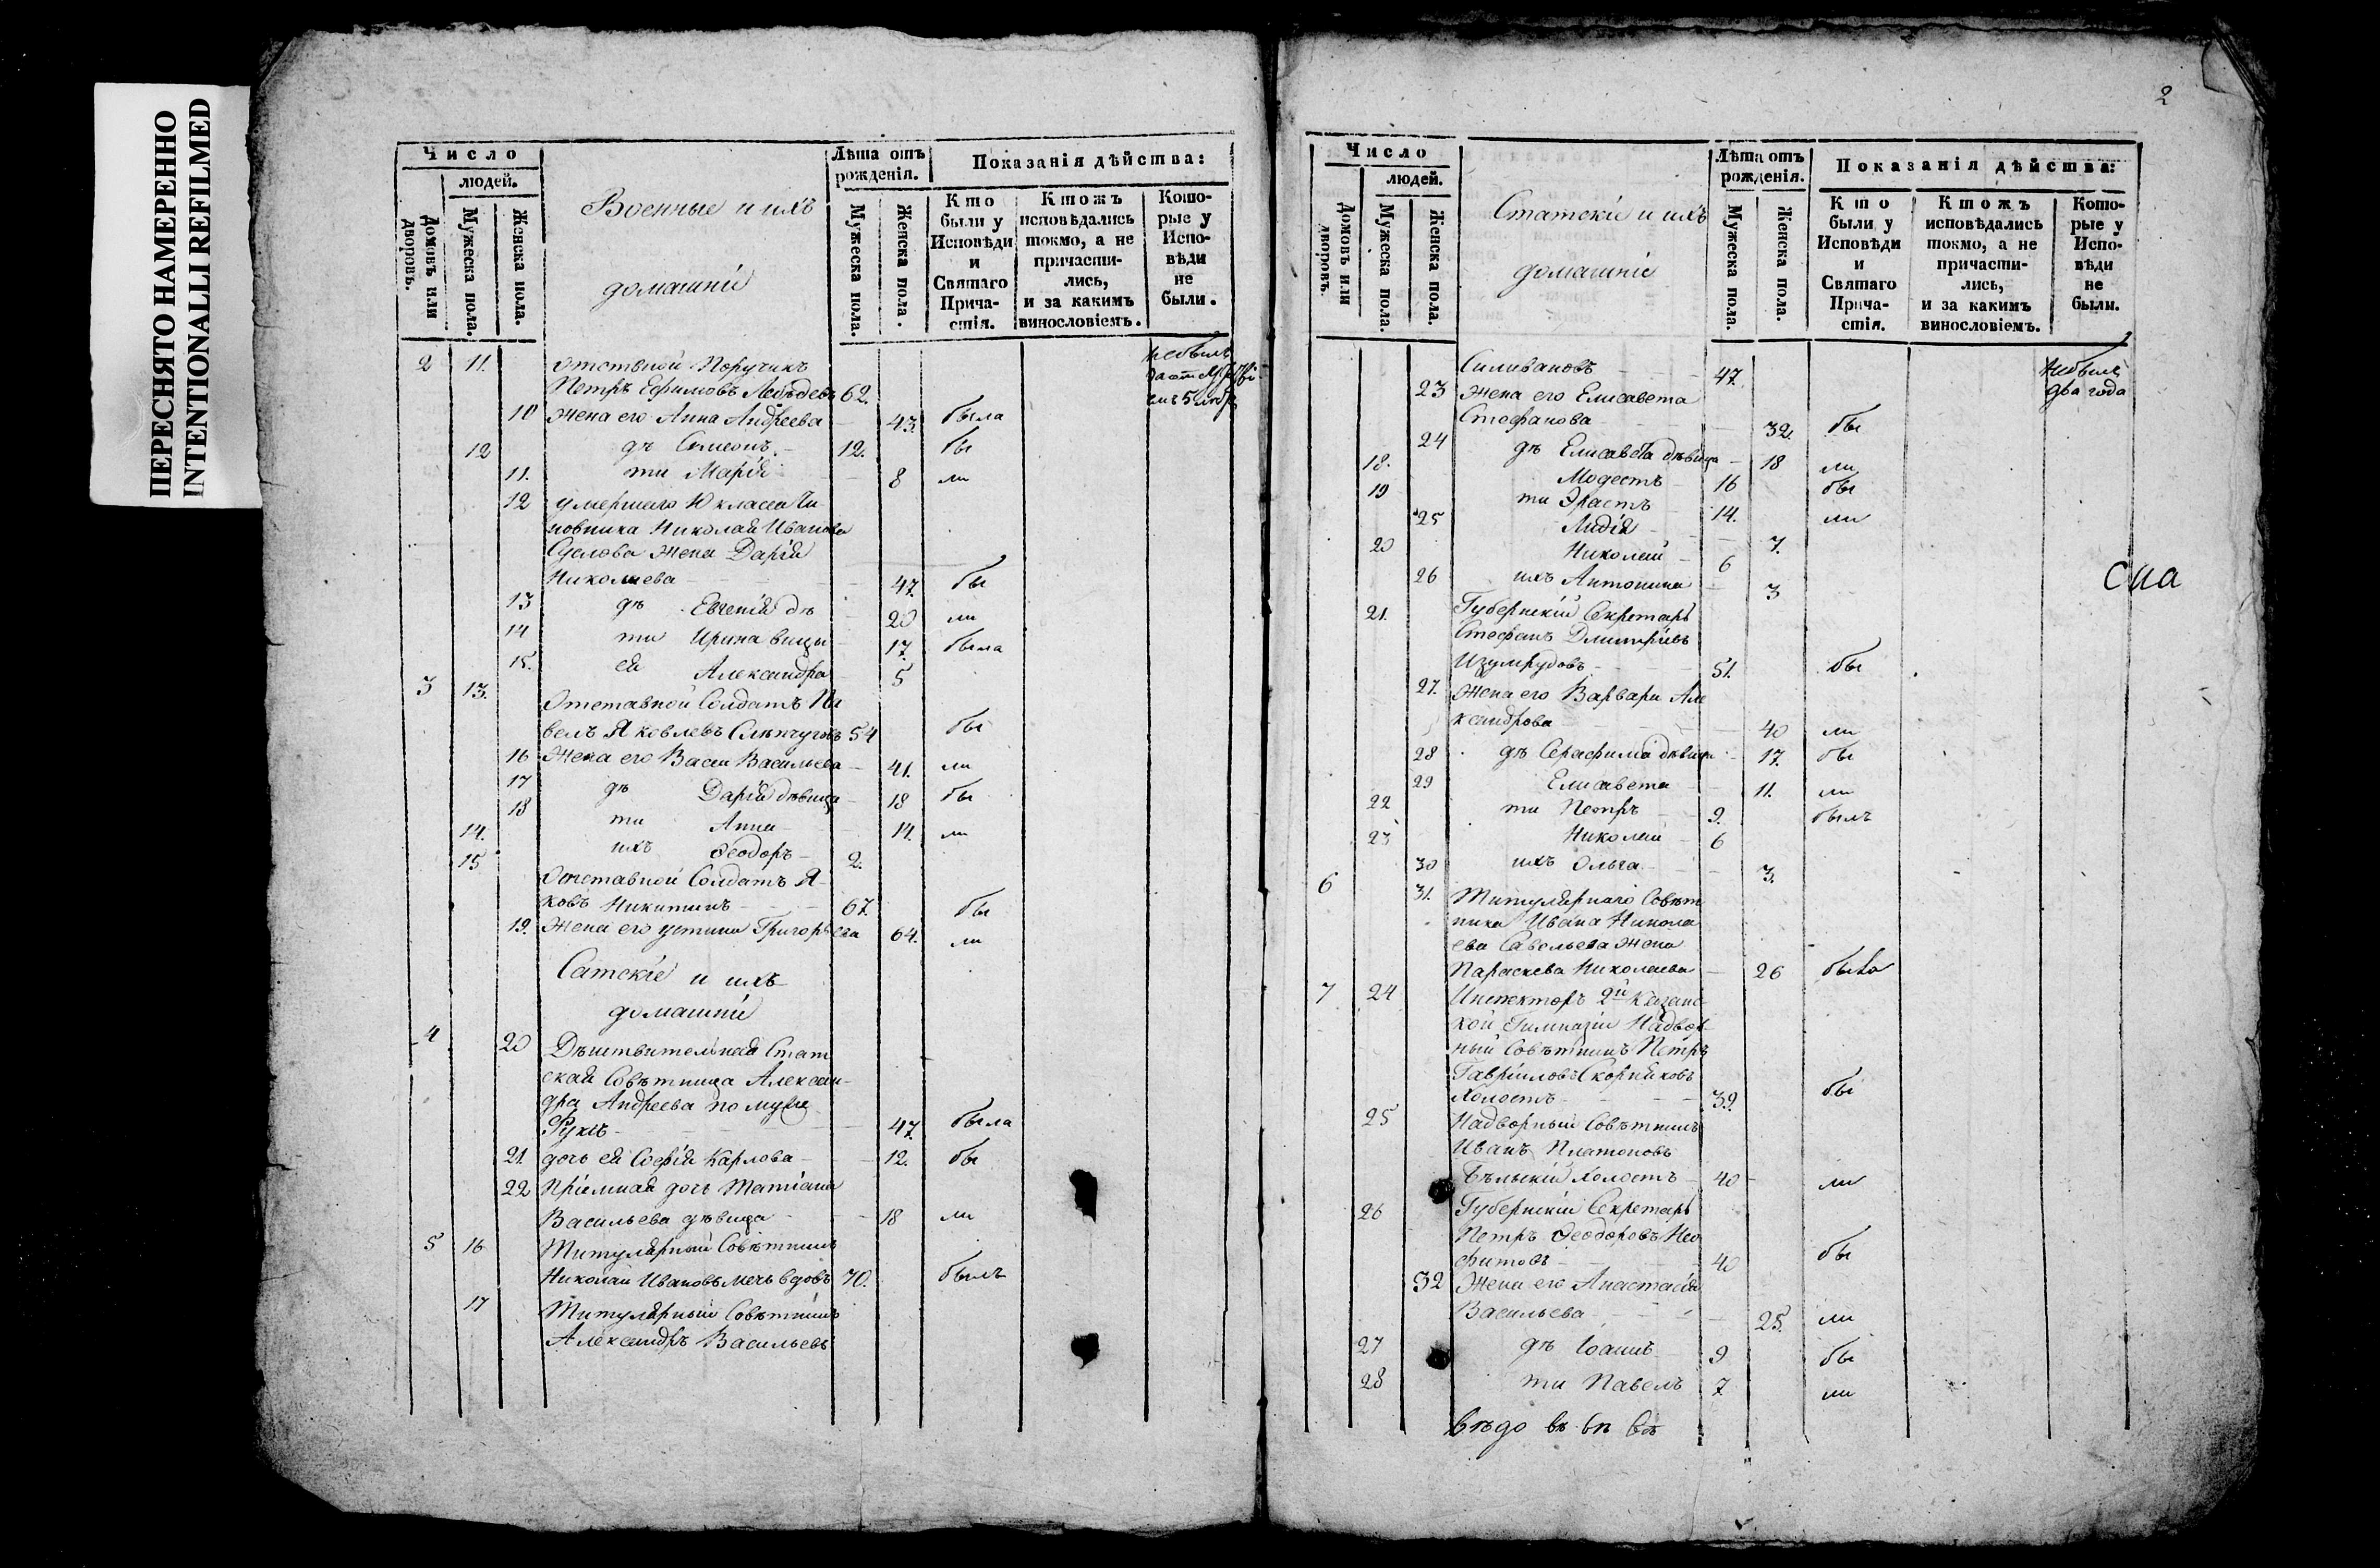 ПЕРЕСНЯТО НАМЕРЕННО
INTENTIONALLI REFILMED
Число
людей.
Домовъ или дворовъ.
Мужеска пола.
Женска пола.
Военные и ихъ
домашніи
Лѣта отъ рожденія.
Мужеска пола.
Женска пола.
Показанія дѣйства:
Кто были у Исповѣди и Святаго Прича-стія.
Ктожъ исповѣдались токмо, а не причасти-лись, и за какимъ винословіемъ.
Кото-рые у Испо-вѣди не были.
2 11. Отствной Поручикъ небылъ
Петръ Ефимовъ Лебѣдевъ 62.
10 Жена его Анна Андреева 43. была
12 дѣ Симеонъ 12. бы
11. ти Марія 8 ли
12 умершаго 10 класса Чи
новника Николая Иванова
жена Дарія
Николаева 47. бы
13 дѣ Евгенія дѣ 20 ли
14 ти Ирина вицы 17. была
15. ея Александра 5
3 13. Отставной Солдатъ Па
велъ Яковлевъ 54 бы
16 Жена его Васса Васильева 41. ли
17 дѣ Дарія дѣвица 18 бы
18 ти Анна 14. ли
14. ихъ Ѳеодоръ 2.
15 Отставной Солдатъ Я
ковъ Никитинъ 67. бы
19. Жена его устина Григорьева 64. ли
Сатскіе и ихъ
домашніи
4 20 Дѣиствительная Стат
ская Совѣтница Алексан-
дра Андреева по муже
Фуксъ 47. была
21. дочь ея Софія Карлова 12. бы
22 Пріемная дочь Татіана
Васильева дѣвица 18 ли
5 16 Титулярный Совѣтникъ
Николаи Ивановъ Мечь вдовъ 70. былъ
17 Титулярныи Совѣтникъ
Александръ Васильевъ
2
Число
людей.
Домовъ или дворовъ.
Мужеска пола.
Женска пола.
Статскіе и ихъ
домашніе
Лѣта отъ рожденія.
Мужеска пола.
Женска пола.
Показанія дѣйства:
Кто были у Исповѣди и Святаго Прича-стія.
Ктожъ исповѣдались токмо, а не причасти-лись, и за какимъ винословіемъ.
Кото-рые у Испо-вѣди не были.
Силивановъ 47. небылъ
23 Жена его Елисавета два года
Стефанова 32. бы
24 дѣ Елисавета дѣвица 18 ли
18. Модестъ 16 бы
19 ти Эрастъ 14. ли
25 Лидія 7.
20 Николай 6
26 ихъ Антонина 3
21. Губернскій Секретарь
Стефанъ Димитріевъ
Изумрудовъ 51. бы
27. Жена его Варвара Але
ксандрова 40 ли
28 дѣ Серафима дѣвица 17. бы
29 Елисавета 11. ли
22 ти Петръ 9. былъ
23 Николай 6
30 ихъ Ольга 3.
6 31. Титулярнаго Совѣт
ника Ивана Никола
ева Савельева жена
Параскева Николаева 26 была
7 24 Инспекторъ 2й Казанс
кой Гимназіи Надвор
ный Совѣтникъ Петръ
Гавриловъ Скорняковъ
Холостъ 39. бы
25 Надворныи Совѣтникъ
Иванъ Платоновъ
Бѣльскій холостъ 40 ли
26 Губернскіи Секретарь
Петръ Ѳеодоровъ Нео
фитовъ 40 бы
32 Жена его Анастасія
Васильева 25. ли
27 дѣ Іоаннъ 9 бы
28 ти Павелъ 7 ли